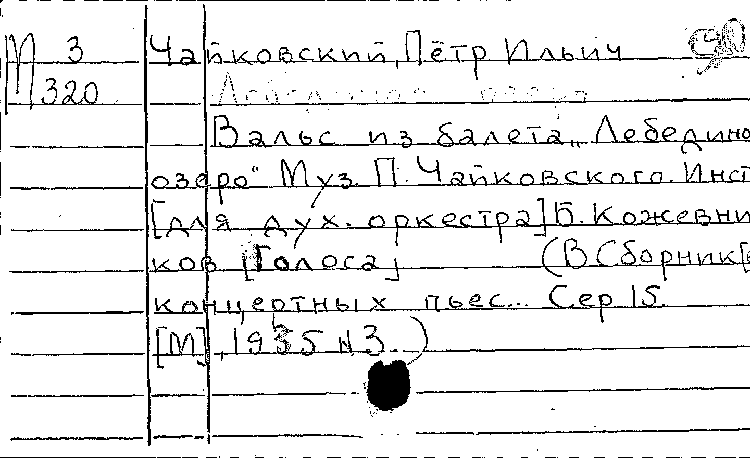 М 3 Чайковский, Пётр Ильич
М 320 Лебединое озеро
Вальс из балета „Лебедино
озеро" Муз. П. Чайковского. Инст
[для дух. оркестра] Б. Кожевни
ков [Голоса] (В Сборник[е
концертных пьес... Сер 15.
[М], 1935 N 3.)